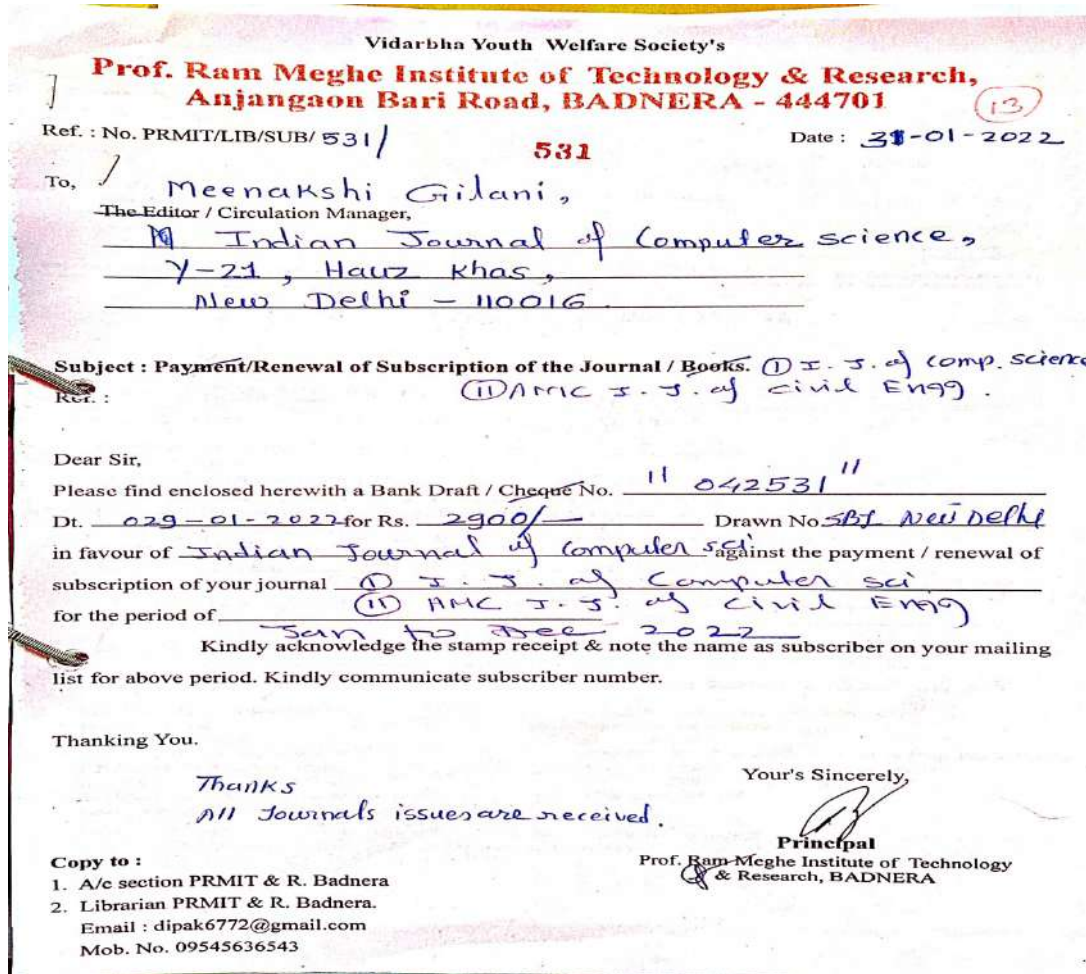 Vidarbha Youth Welfare Society's
Prof. Ram Meghe Institute of Technology & Research,
Anjangaon Bari Road, BADNERA - 444701
13
Ref. : No. PRMIT/LIB/SUB/ 531/
531
Date : 31-01-2022
To,
Meenakshi Gilani,
The Editor / Circulation Manager,
Indian Journal of Computer science,
Y-21, Hauz Khas,
New Delhi - 110016
Subject : Payment/Renewal of Subscription of the Journal / Books. (I) I. J. of Comp. science
Ref. : (II) AMC I. J. of Civil Engg.
Dear Sir,
Please find enclosed herewith a Bank Draft / Cheque No. "042531"
Dt. 029-01-2022 for Rs. 2900/- Drawn No. SBI New Delhi
in favour of Indian Journal of Computer sci against the payment / renewal of
subscription of your journal (I) I. J. of Computer sci
for the period of (II) AMC I. J. of Civil Engg
Jan to Dec 2022
Kindly acknowledge the stamp receipt & note the name as subscriber on your mailing
list for above period. Kindly communicate subscriber number.
Thanking You.
Thanks
All Journals issues are received.
Your's Sincerely,
Principal
Prof. Ram Meghe Institute of Technology
& Research, BADNERA
Copy to :
1. A/c section PRMIT & R. Badnera
2. Librarian PRMIT & R. Badnera.
Email : dipak6772@gmail.com
Mob. No. 09545636543